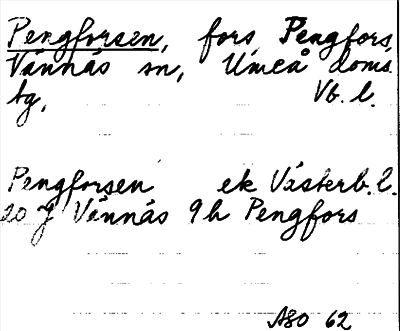 Pengforsen, fors, Pengfors,
Vännäs sn, Umeå doms.
tg, Vb. l.
Pengforsen ek Västerb. l.
20 J Vännäs 9h Pengfors
ASO 62